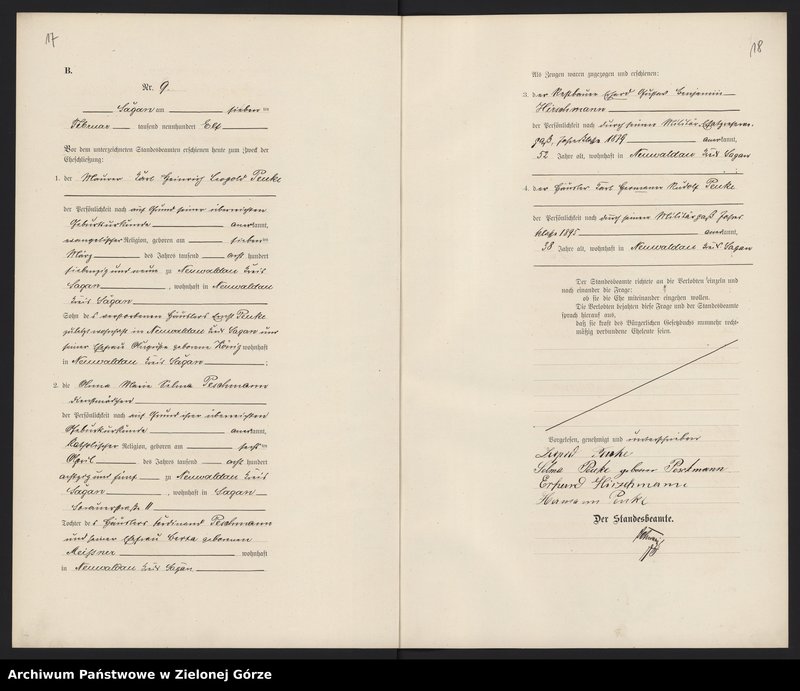 17
B.
Nr. 9.
Sagan am sieben ten
Februar tausend neunhundert Elf
Vor dem unterzeichneten Standesbeamten erschienen heute zum Zweck der
Eheschließung:
1. der Maurer Karl Heinrich Leopold Penke
der Persönlichkeit nach auf Grund seiner überreichten
Geburtsurkunde anerkannt,
evangelischer Religion, geboren am sieben ten
März des Jahres tausend acht hundert
siebenzig und neun zu Neuwaldau Kreis
Sagan, wohnhaft in Neuwaldau
Kreis Sagan
Sohn des verstorbenen Häuslers Ernst Penke
zuletzt wohnhaft in Neuwaldau Kreis Sagan und
seiner Ehefrau geborene König wohnhaft
in Neuwaldau Kreis Sagan;
2. die Anna Marie Selma Peschmann
Dienstmädchen
der Persönlichkeit nach auf Grund ihrer überreichten
Geburtsurkunde anerkannt,
katholischer Religion, geboren am sechs ten
April des Jahres tausend acht hundert
achtzig und fünf zu Neuwaldau Kreis
Sagan, wohnhaft in Sagan
Sorauerstraße 11
Tochter des Häuslers Ferdinand Peschmann
und seiner Ehefrau Berta geborenen
Meißner wohnhaft
in Neuwaldau Kreis Sagan
18
Als Zeugen waren zugezogen und erschienen:
3. der Restbauer Erhard Gustav Benjamin
Hirschmann
der Persönlichkeit nach durch seinen Militär
paß, Jahresklasse 1879 anerkannt,
52 Jahre alt, wohnhaft in Neuwaldau Kreis Sagan
4. der Häusler Karl Hermann Rudolf Penke
der Persönlichkeit nach durch seinen Militärpaß Jahres
klasse 1895 anerkannt,
38 Jahre alt, wohnhaft in Neuwaldau Kreis Sagan
Der Standesbeamte richtete an die Verlobten einzeln und
nach einander die Frage:
ob sie die Ehe miteinander eingehen wollen.
Die Verlobten bejahten diese Frage und der Standesbeamte
sprach hierauf aus,
daß sie kraft des Bürgerlichen Gesetzbuchs nunmehr recht-
mäßig verbundene Eheleute seien.
Vorgelesen, genehmigt und unterschrieben
Leopold Penke
Selma Penke geborene
Erhard Hirschmann
Hermann Penke
Der Standesbeamte.
Archiwum Państwowe w Zielonej Górze